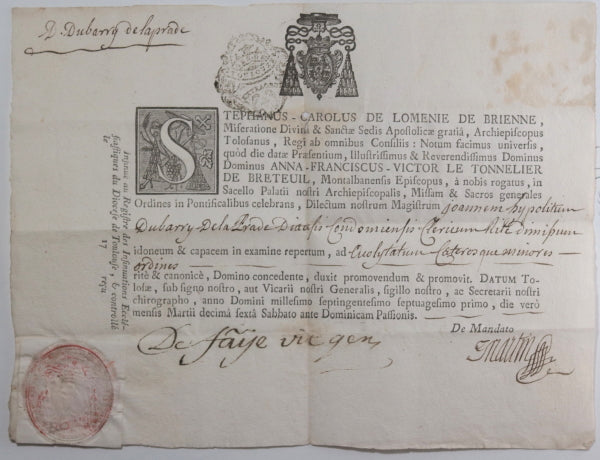 D. Dubarry de laprade
STEPHANUS-CAROLUS DE LOMENIE DE BRIENNE,
Miseratione Divinâ & Sanctæ Sedis Apostolicæ gratiâ, Archiepiscopus
Tolosanus, Regi ab omnibus Consiliis: Notum facimus universis,
quòd die datæ Præsentium, Illustrissimus & Reverendissimus Dominus
Dominus ANNA-FRANCISCUS-VICTOR LE TONNELIER
DE BRETEUIL, Montalbanensis Episcopus, à nobis rogatus, in
Sacello Palatii nostri Archiepiscopalis, Missam & Sacros generales
Ordines in Pontificalibus celebrans, Dilectum nostrum Magistrum joannem hypolitum
Dubarry De la Prade Diœcesis Condomiensis Clericum Rite dimissum
idoneum & capacem in examine repertum, ad Acolytatum Cæterosque minores
ordines
ritè & canonicè, Domino concedente, duxit promovendum & promovit. DATUM To-
losæ, sub signo nostro, aut Vicarii nostri Generalis, sigillo nostro, ac Secretarii nostri
chirographo, anno Domini millesimo septingentesimo septuagesimo primo, die verò
mensis Martii decimâ sextâ Sabbato ante Dominicam Passionis.
De Mandato
De faije vic gen
Insinué au Registre des Insinuations Ecclé-
siastiques du Diocèse de Toulouse, & contrôllé
le 17 177